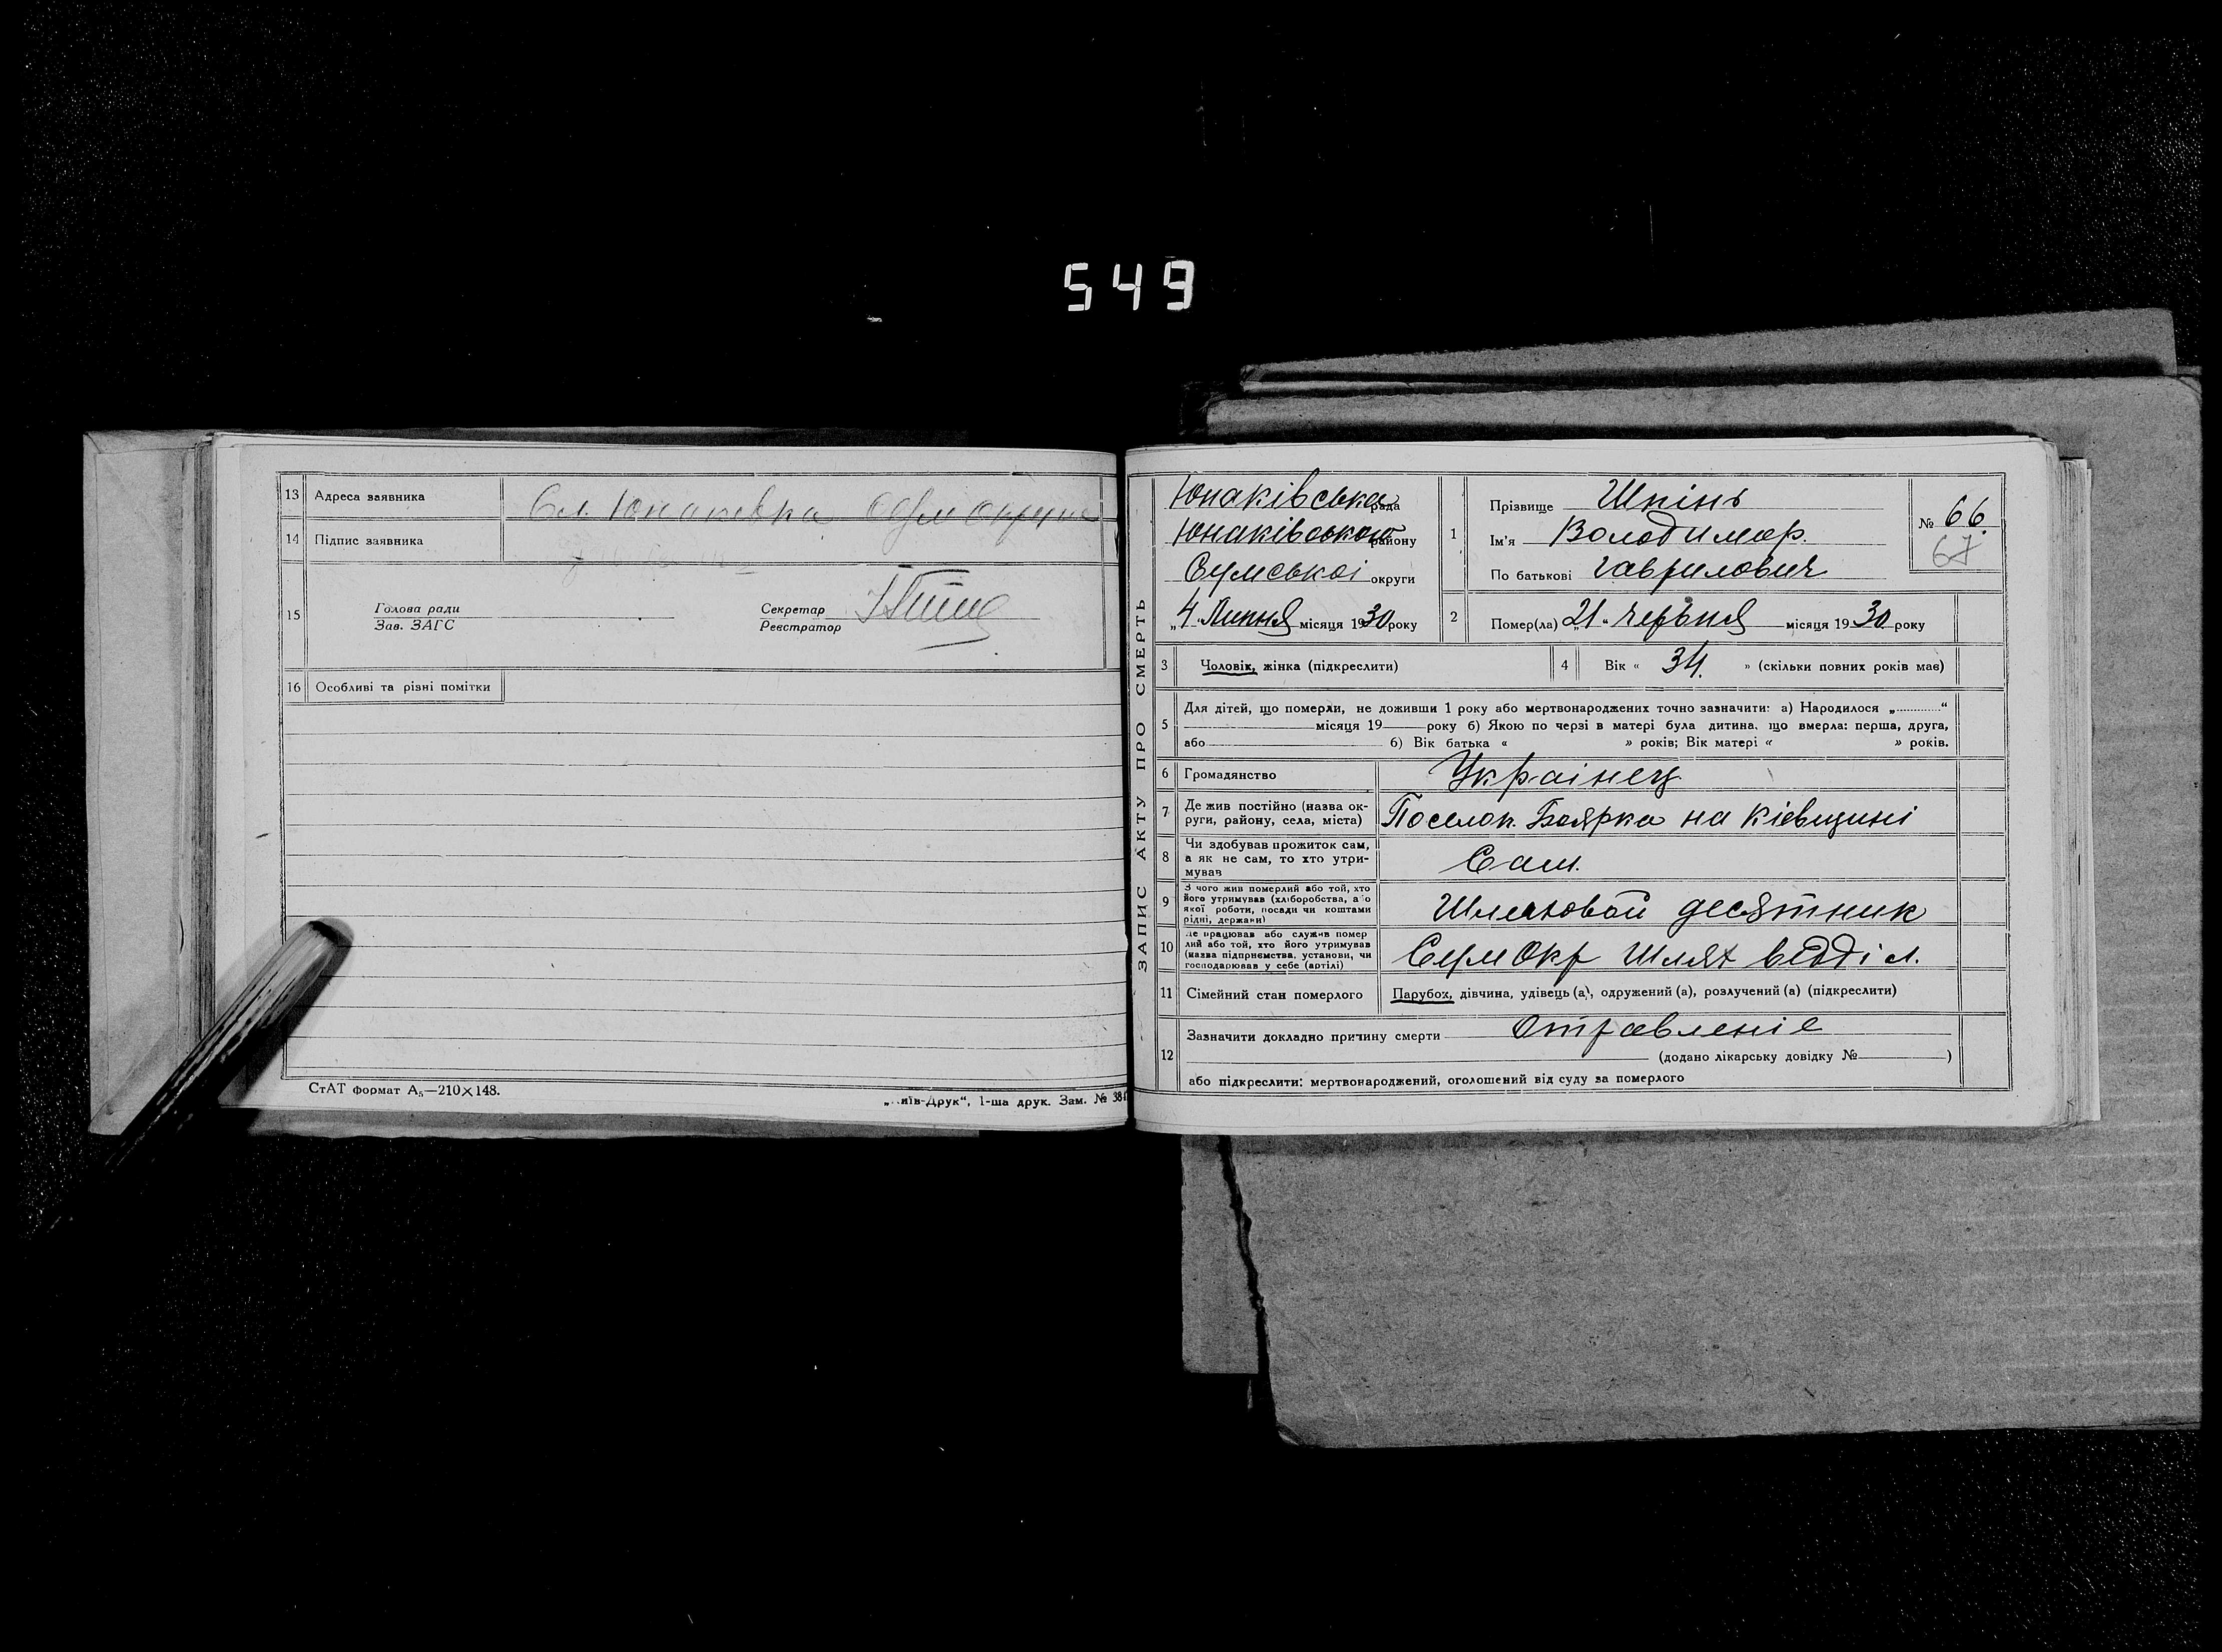 549
13 Адреса заявника Сл. Юнаковка
14 Підпис заявника
15 Голова ради
Зав. ЗАГС
Секретар
Реєстратор
16 Особливі та різні помітки
СтАТ формат А₅—210×148.
иїв-Друк“, 1-ша друк. Зам. № 38
ЗАПИС АКТУ ПРО СМЕРТЬ
Юнаківська рада
Юнаківського району
Сумської округи
„4“ Липня місяця 1930 року
1 Прізвище Шпінь
Ім'я Володимер.
По батькові Гаврилович
№ 66
67
2 Помер(ла) „21“ червня місяця 1930 року
3 Чоловік, жінка (підкреслити)
4 Вік « 34. » (скільки повних років має)
5 Для дітей, що померли, не доживши 1 року або мертвонароджених точно зазначити: а) Народилося „ “
місяця 19 року б) Якою по черзі в матері була дитина, що вмерла: перша, друга,
або б) Вік батька « » років; Вік матері « » років.
6 Громадянство Украінец
7 Де жив постійно (назва ок-
руги, району, села, міста) Поселок. Боярка на Кіевщині
8 Чи здобував прожиток сам,
а як не сам, то хто утри-
мував Сам.
9 З чого жив померлий або той, хто
його утримував (хліборобства, або
якої роботи, посади чи коштами
рідні, держави) Шляховой десятник
10 Де працював або служив помер
лий або той, хто його утримував
(назва підприємства, установи, чи
господарював у себе (артілі) СумОкр Шлях відділ.
11 Сімейний стан померлого Парубок, дівчина, удівець (а), одружений (а), розлучений (а) (підкреслити)
12 Зазначити докладно причину смерти Отравленіе
(додано лікарську довідку № )
або підкреслити: мертвонароджений, оголошений від суду за померлого